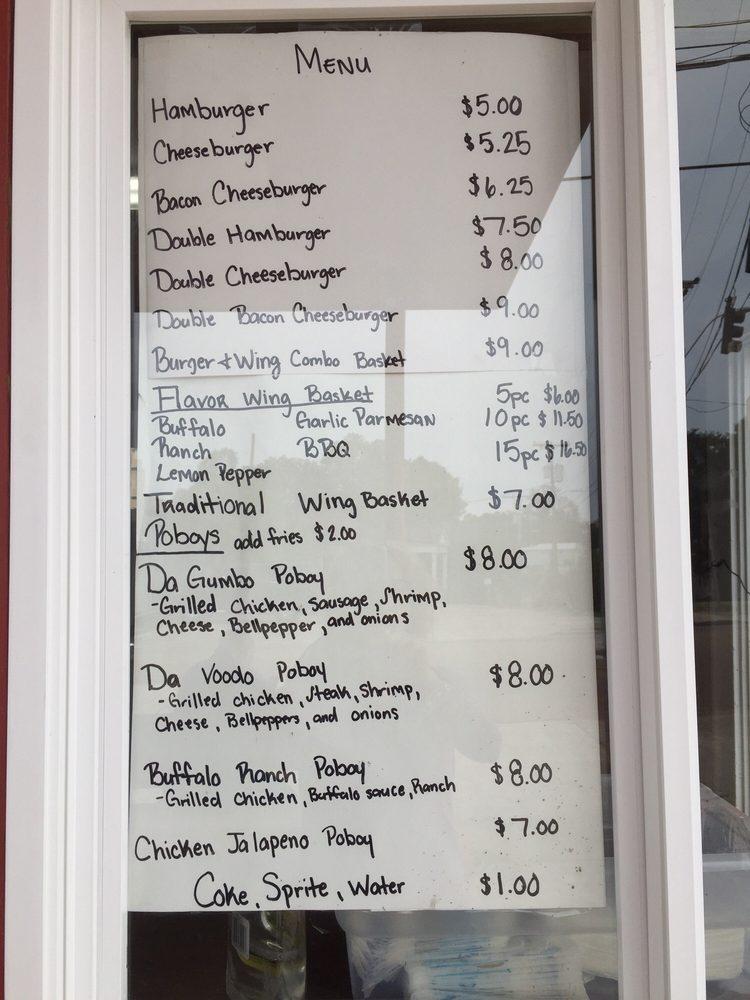 MENU
Hamburger $5.00
Cheeseburger $5.25
Bacon Cheeseburger $6.25
Double Hamburger $7.50
Double Cheeseburger $8.00
Double Bacon Cheeseburger $9.00
Burger & Wing Combo Basket $9.00
Flavor Wing Basket 5pc $6.00
Buffalo Garlic Parmesan 10pc $11.50
Ranch BBQ 15pc $16.50
Lemon Pepper
Traditional Wing Basket $7.00
Poboys add fries $2.00
Da Gumbo Poboy $8.00
-Grilled Chicken, Sausage, Shrimp,
Cheese, Bellpepper, and onions
Da Voodo Poboy $8.00
-Grilled chicken, Steak, Shrimp,
Cheese, Bellpeppers, and onions
Buffalo Ranch Poboy $8.00
-Grilled Chicken, Buffalo sauce, Ranch
Chicken Jalapeno Poboy $7.00
Coke, Sprite, Water $1.00